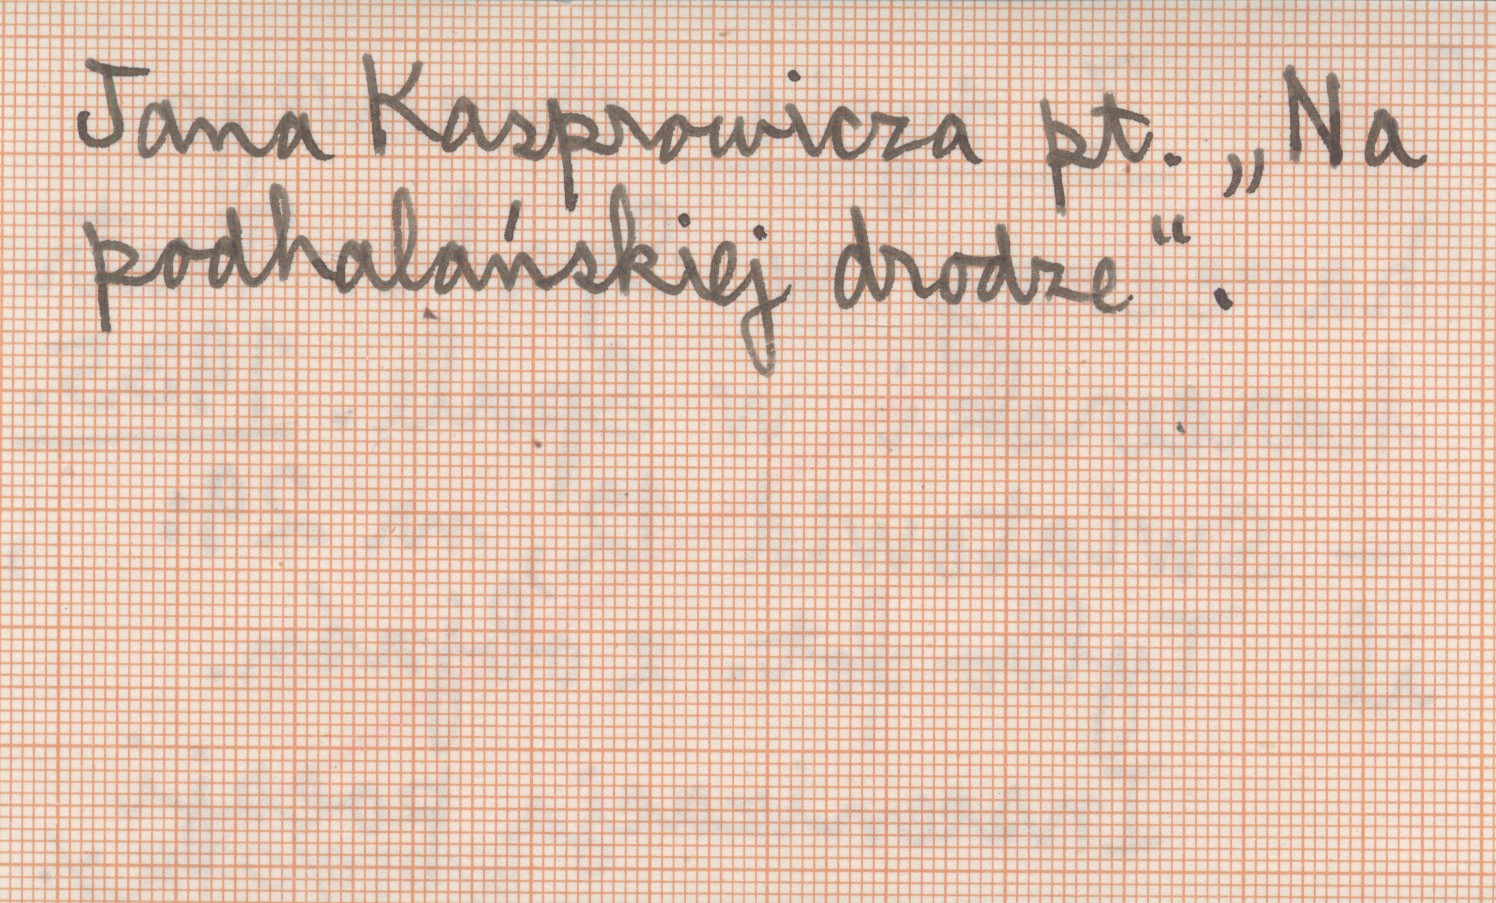 Jana Kasprowicza pt. „Na
podhalańskiej drodze“.